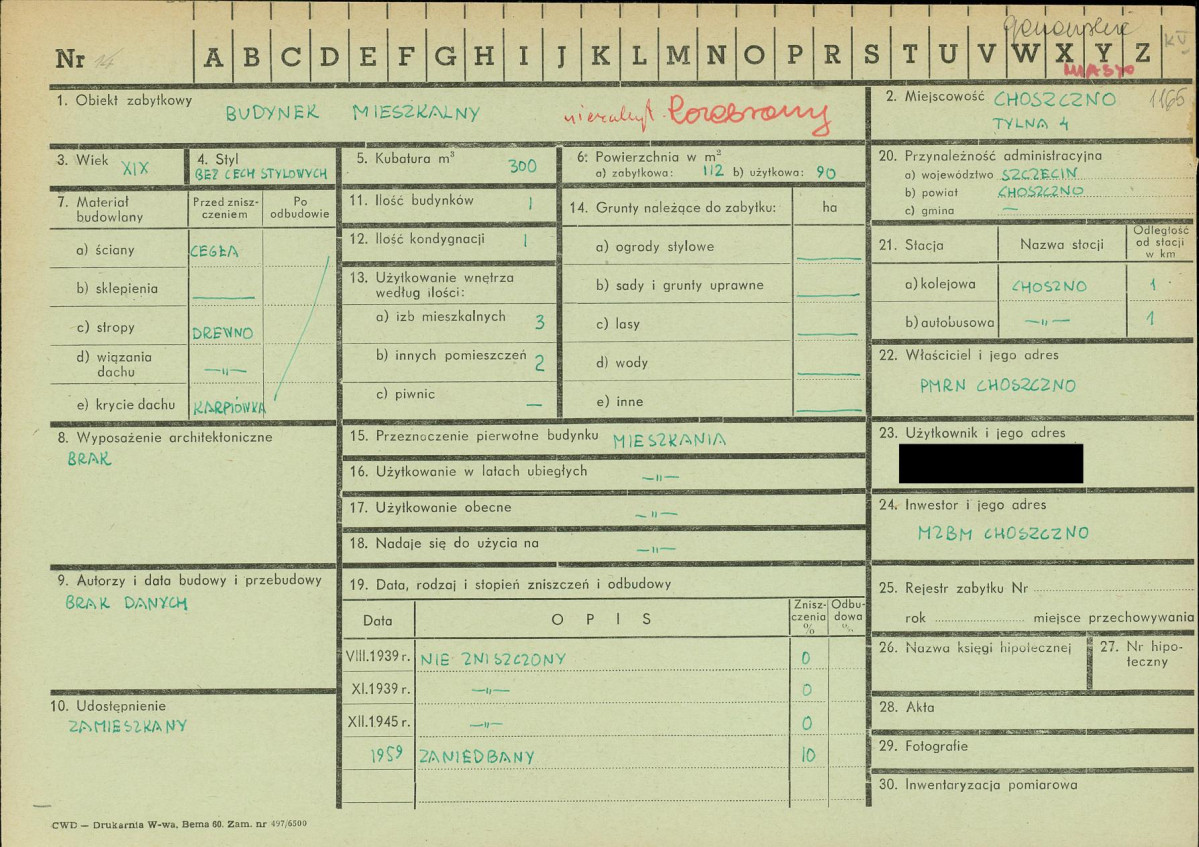 Nr 14 A B C D E F G H I J K L M N O P R S T U V W X Y Z
MIASTO
1. Obiekt zabytkowy
BUDYNEK MIESZKALNY
2. Miejscowość CHOSZCZNO 1165
TYLNA 4
3. Wiek XIX
4. Styl
BEZ CECH STYLOWYCH
5. Kubatura m³ 300
6. Powierzchnia w m²
a) zabytkowa: 112 b) użytkowa: 90
20. Przynależność administracyjna
a) województwo SZCZECIN
b) powiat CHOSZCZNO
c) gmina —
7. Materiał budowlany
Przed znisz-
czeniem
Po
odbudowie
a) ściany CEGŁA
b) sklepienia —
c) stropy DREWNO
d) wiązania
dachu —"—
e) krycie dachu KARPIÓWKA
11. Ilość budynków 1
12. Ilość kondygnacji 1
13. Użytkowanie wnętrza
według ilości:
a) izb mieszkalnych 3
b) innych pomieszczeń 2
c) piwnic —
14. Grunty należące do zabytku: ha
a) ogrody stylowe —
b) sady i grunty uprawne —
c) lasy —
d) wody —
e) inne —
21. Stacja Nazwa stacji
Odległość
od stacji
w km
a) kolejowa CHOSZNO 1
b) autobusowa —"— 1
22. Właściciel i jego adres
PMRN CHOSZCZNO
8. Wyposażenie architektoniczne
BRAK
15. Przeznoczenie pierwotne budynku MIESZKANIA
16. Użytkowanie w latach ubiegłych —"—
17. Użytkowanie obecne —"—
18. Nadaje się do użycia na —"—
23. Użytkownik i jego adres
24. Inwestor i jego adres
MZBM CHOSZCZNO
9. Autorzy i data budowy i przebudowy
BRAK DANYCH
19. Data, rodzaj i stopień zniszczeń i odbudowy
Data OPIS
Znisz-
czenia
%
Odbu-
dowa
%
VIII.1939 r. NIE ZNISZCZONY 0
XI.1939 r. —"— 0
XII.1945 r. —"— 0
1959 ZANIEDBANY 10
25. Rejestr zabytku Nr
rok miejsce przechowywania
26. Nazwa księgi hipotecznej
27. Nr hipo-
teczny
10. Udostępnienie
ZAMIESZKANY
28. Akta
29. Fotografie
30. Inwentaryzacja pomiarowa
CWD — Drukarnia W-wa, Bema 60. Zam. nr 497/6500